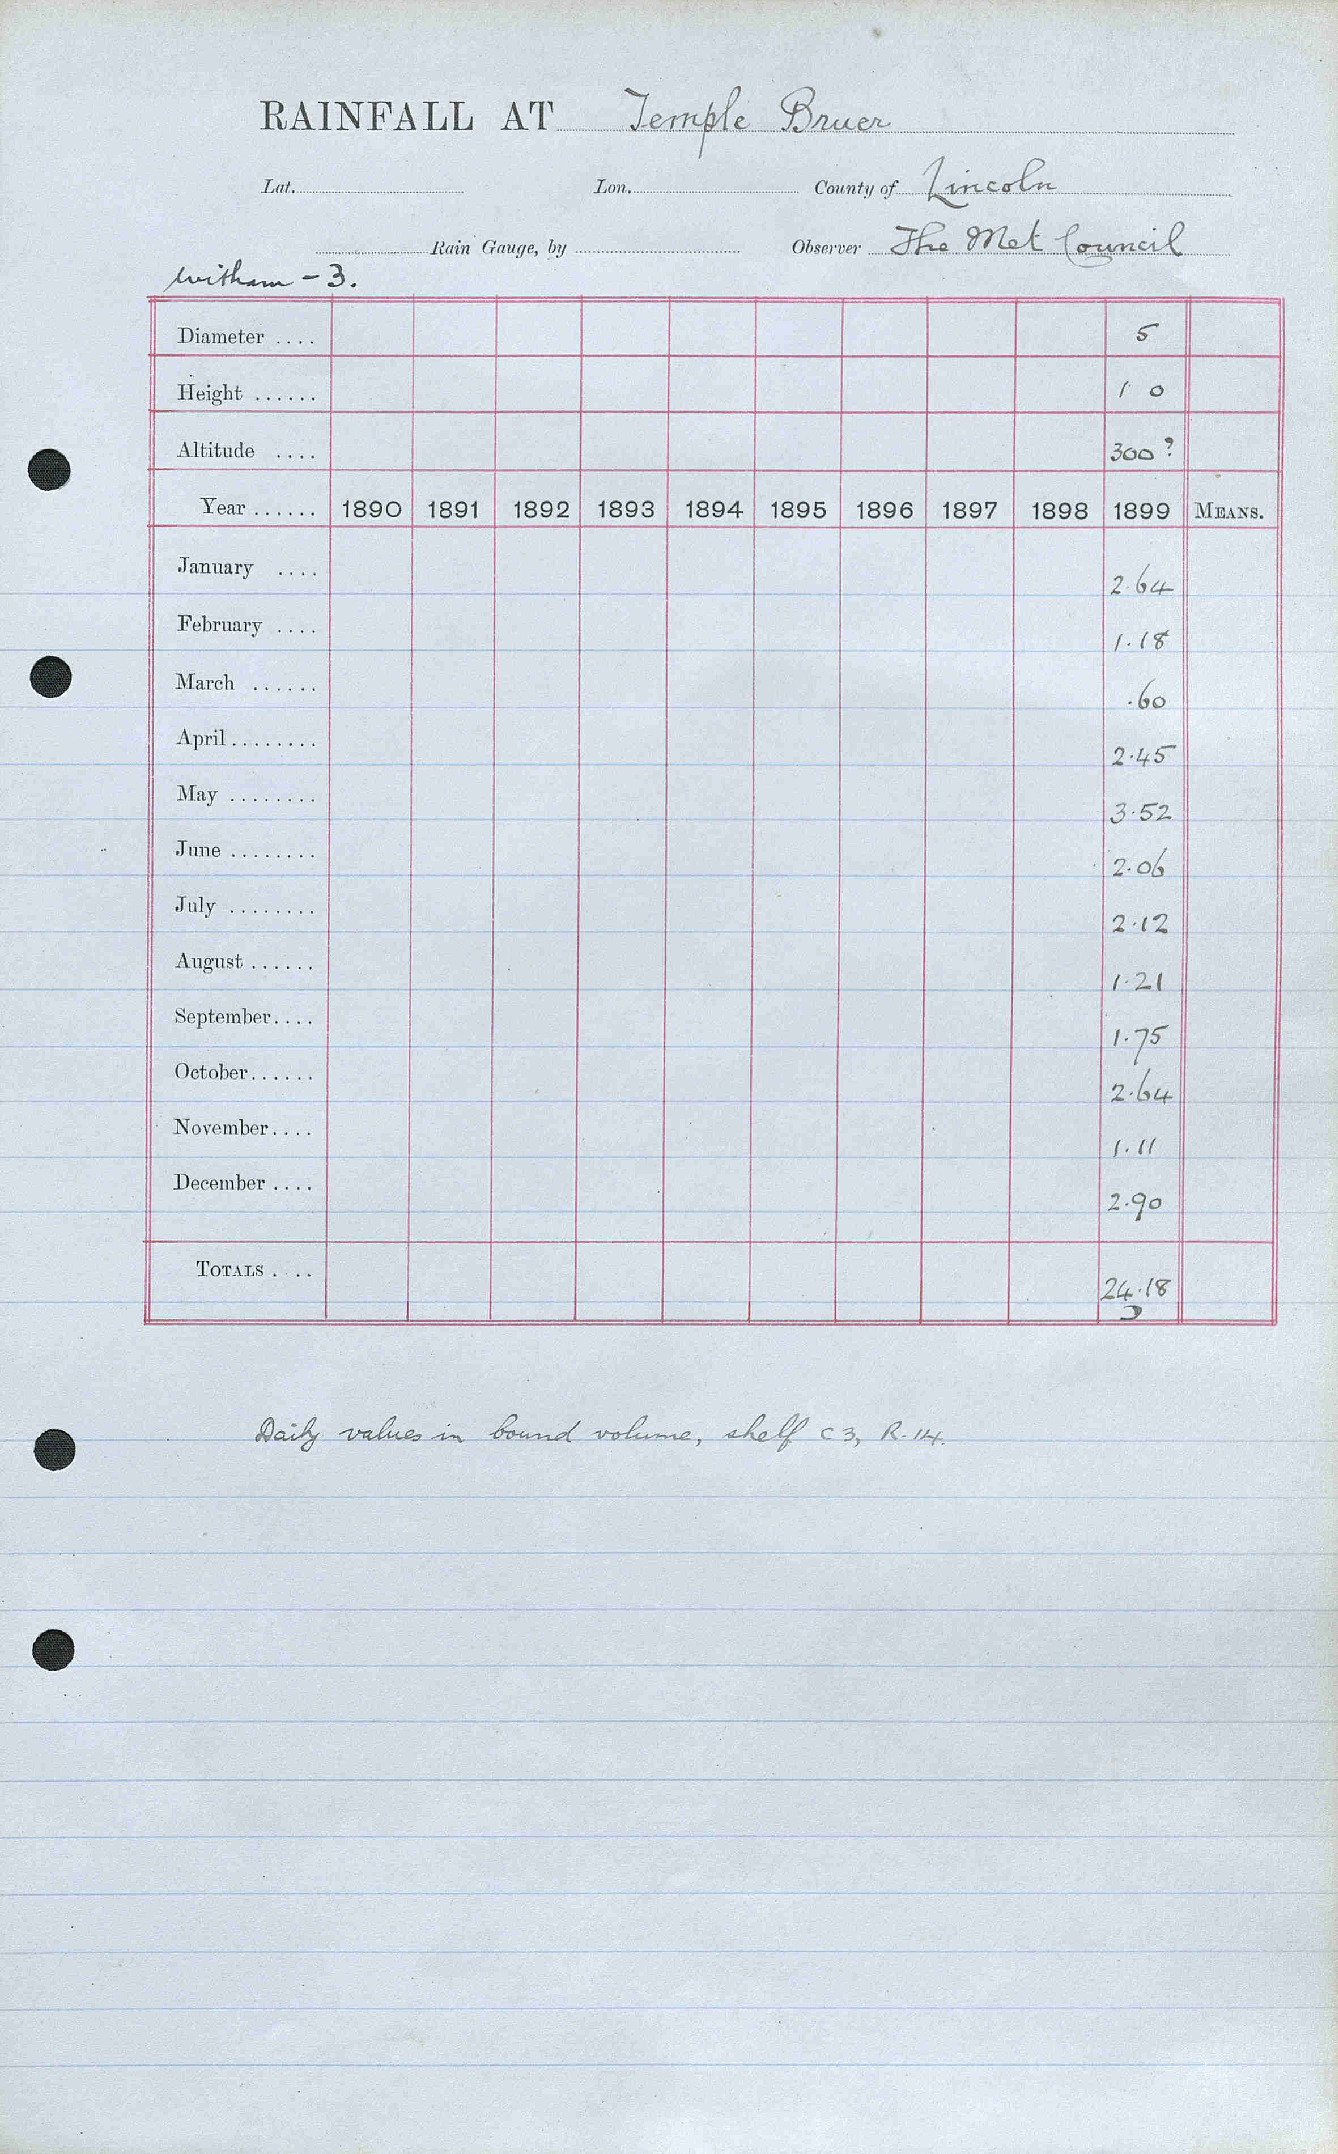 RAINFALL AT Temple Bruer
Lat. Lon. County of Lincoln
Rain Gauge, by Observer The Met Council
Witham - 3.
Diameter .... 5
Height ...... 1 0
Altitude .... 300?
Year ...... 1890 1891 1892 1893 1894 1895 1896 1897 1898 1899 MEANS.
January .... 2.64
February .... 1.18
March ...... .60
April ........ 2.45
May ........ 3.52
June ........ 2.06
July ........ 2.12
August ...... 1.21
September.... 1.75
October...... 2.64
November.... 1.11
December .... 2.90
TOTALS .... 24.18
Daily values in bound volume, shelf C3, R.14.